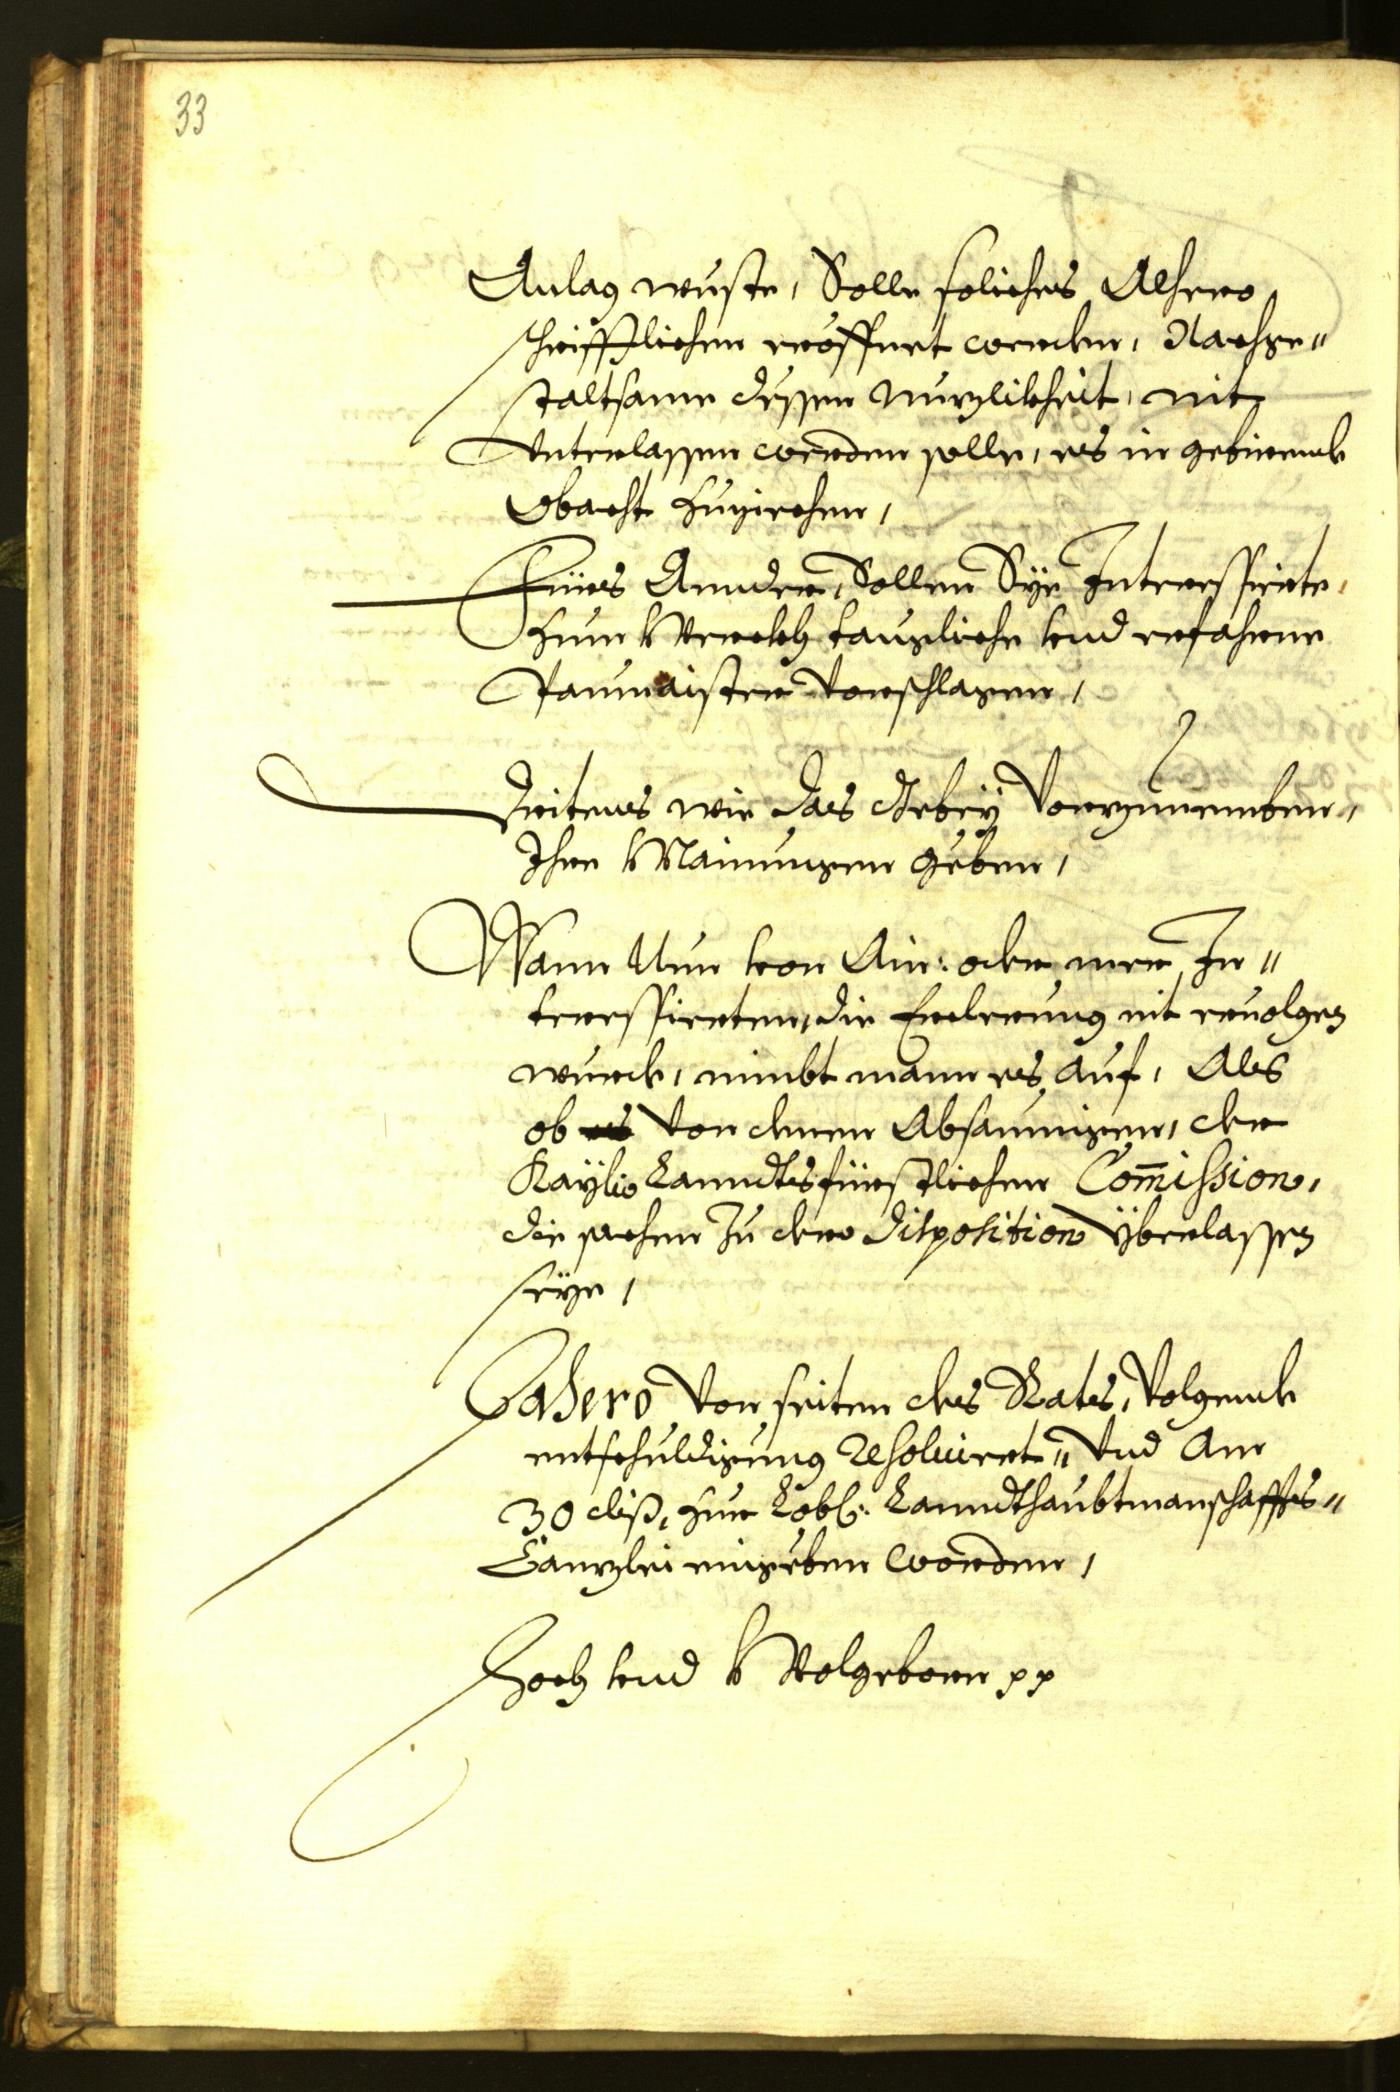 33
Anlag wuste, Solle soliches Alhero
schrifftlichen eröffnet werden, Nachge„
staltsame dessen Nuzlikheit, nit
Unterlassen werden solle, es in gebirende
Obacht zuziechen,
Fürs Annder, Sollen Sÿe Interessierte,
zum Werckh taugliche vnd erfahrne
Paumaister Vorschlagen,
Dritens wie das Gebeÿ Vorzunemben,
Ihre Mainungen geben,
Wann Nun von Ain: oder mer In„
teressierten, die Erclerung nit ervolgen
wurde, nimbt mann es auf, Als
ob Von denen Absaumigen, der
Kaÿ: Lanndtsfürstlichen Com̄ission,
die sachen zu dero disposition Überlassen
seÿe,
Dahero Von seiten des Rates, Volgende
entschuldigung resoluiret„ Vnd Am
30 diß, zur Lobl: Lanndthaubtmanschaffts„
Canzlei eingeben worden,
Hoch vnd Wolgeborn pp